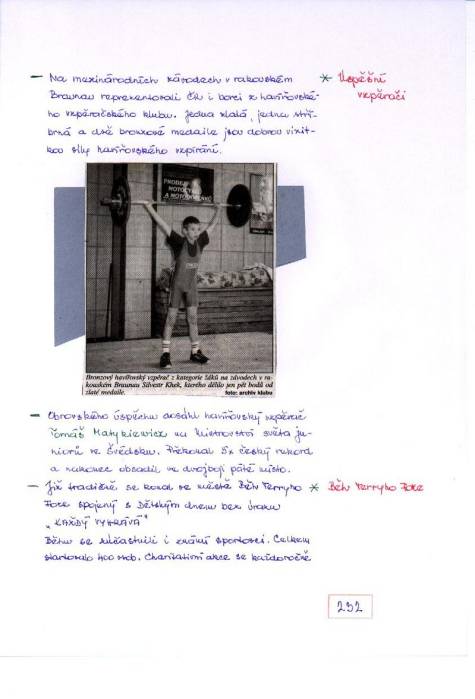 - Na mezinárodních závodech v rakouském
Braunau reprezentovali ČR i borci z havířovské-
ho vzpěračského klubu. Jedna zlatá, jedna stří-
brná a dvě bronzové medaile jsou dobrou vizit-
kou síly havířovského vzpírání.
* Úspěšní
vzpěrači
PRODEJ
MOTOCYKLŮ
A MOTODOPLŇKŮ
Bronzový havířovský vzpěrač z kategorie žáků na závodech v ra-
kouském Braunau Silvestr Khek, kterého dělilo jen pět bodů od
zlaté medaile.
foto: archiv klubu
- Obrovského úspěchu dosáhl havířovský vzpěrač
Tomáš Matykiewicz na Mistrovství světa ju-
niorů ve Švédsku. Překonal 5x český rekord
a nakonec obsadil ve dvojboji páté místo.
- Již tradičně se konal ve městě Běh Terryho
Foxe spojený s Dětským dnem bez úrazu
"KAŽDÝ VYHRÁVÁ"
Běhu se zúčastnili i známí sportovci. Celkem
startovalo 400 osob. Charitativní akce se každoročně
* Běh Terryho Foxe
232